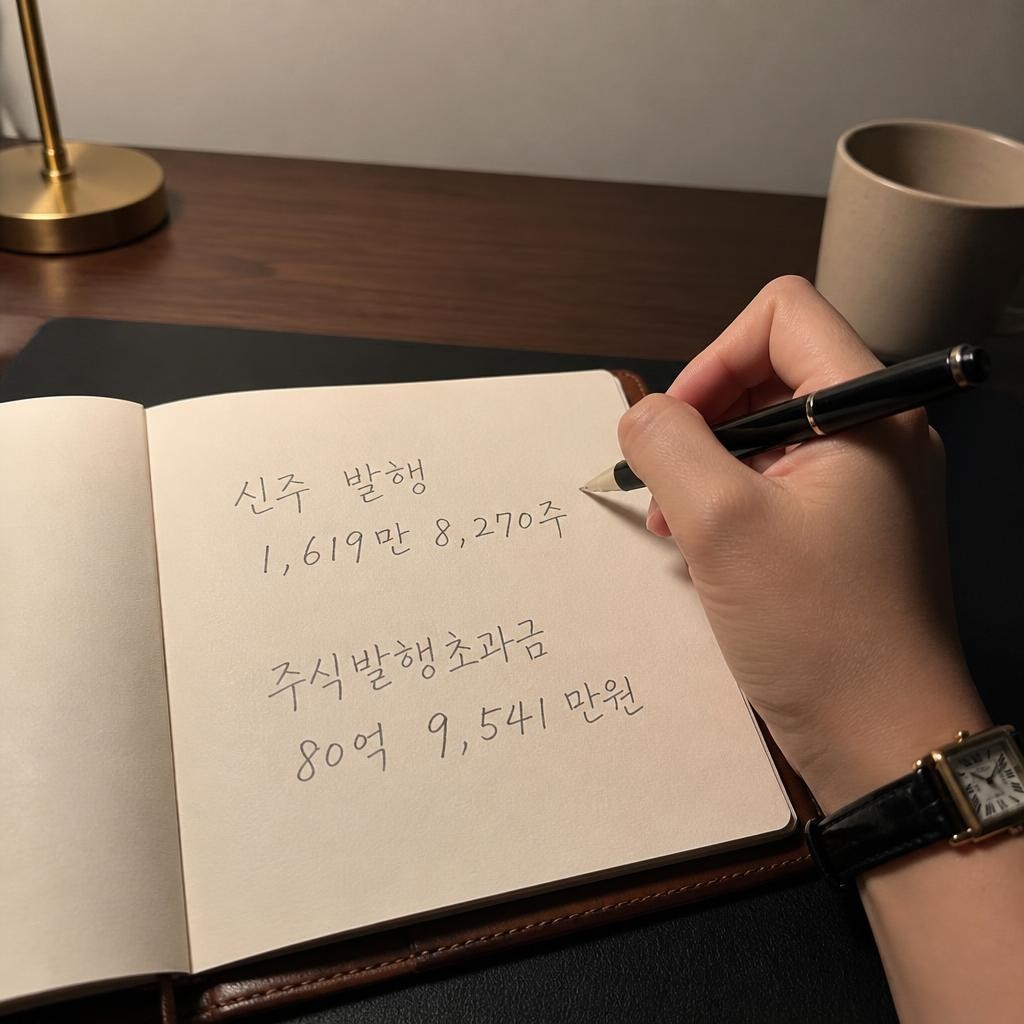 신주 발행
1,619만 8,270주
주식발행초과금
80억 9,541만원